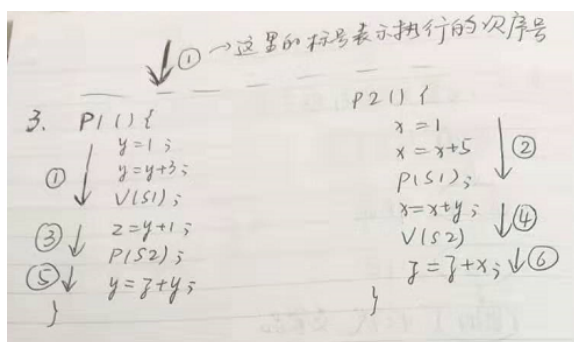 ① →这里的标号表示执行的次序号
3. P1(){
y=1;
y=y+3;
V(S1);
z=y+1;
P(S2);
y=z+y;
}
①
③
⑤
P2(){
x=1
x=x+5
P(S1);
x=x+y;
V(S2)
z=z+x;
}
②
④
⑥